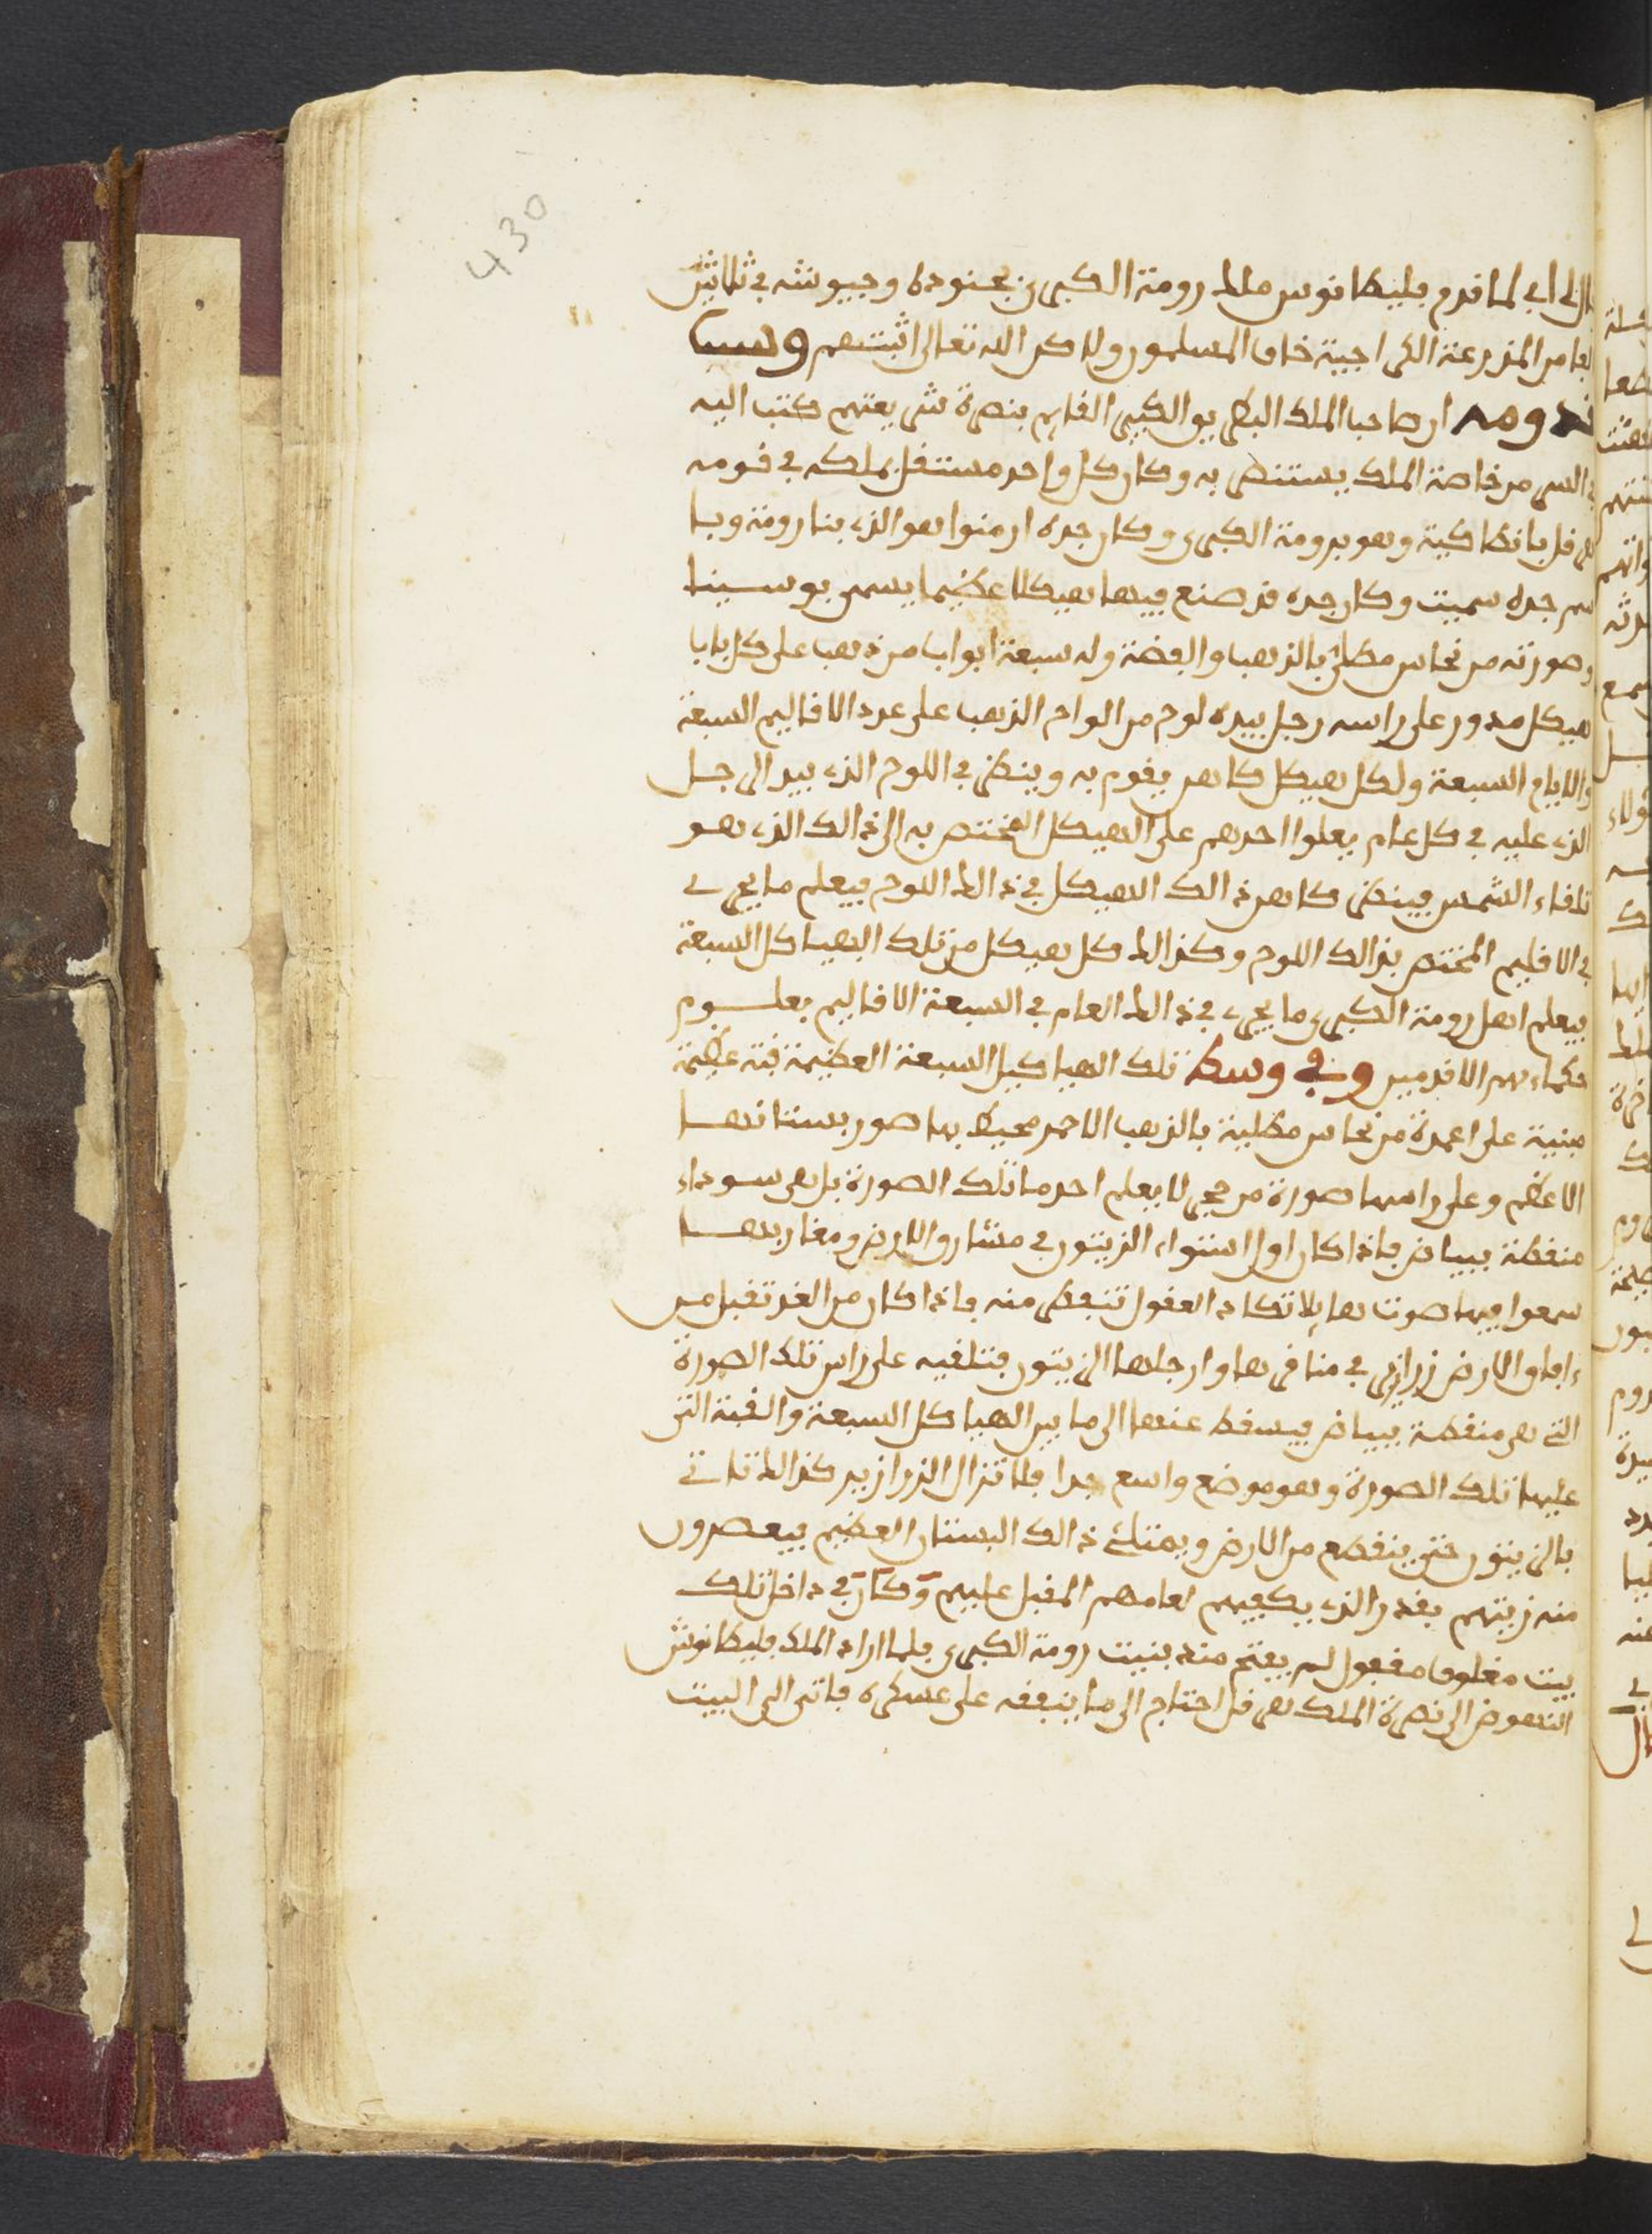 430
قال الراوي لما قدم فليطانوس ملك رومة الكبرى بجنوده وجيوشه في ثلاثين
الفا من المذرعة الكراجية خاف المسلمون ولاكن الله تعالى اثبتهم وسبب
قدومه ان صاحب الملك البطريق الكبير القايم بنصرة شريعتهم كتب اليه
في السر من خاصة الملك يستنصر به وكان كل واحد مستقل بملكه في قومه
هرقل بانطاكية وهو برومة الكبرى وكان جده ارمنوا هو الذي بنا رومة وبا
سم جده سميت وكان جده قد صنع فيها هيكلا عظيما يسمى بوسينا
وصورته من نحاس مطلي بالذهب والفضة وله سبعة ابواب من ذهب على كل بابا
هيكل مدور على راسه رجل بيده لوح من الواح الذهب على عدد الاقاليم السبعة
والايام السبعة ولكل هيكل كاهن يقوم به وينظر في اللوح الذي بيد الرجل
الذي عليه في كل عام يعلوا احدهم على الهيكل المختص به الى ذالك الذي هو
تلقاء الشمس فينظر كاهن ذالك الهيكل في ذالك اللوح فيعلم ما يجري
في الاقليم المختص بذالك اللوح وكذالك كل هيكل من تلك الهياكل السبعة
فيعلم اهل رومة الكبرى ما يجري في ذالك العام في السبعة الاقاليم بعلوم
حكماءهم الاقدمين وفي وسط تلك الهياكيل السبعة العظيمة قبة عظيمة
مبنية على اعمدة من نحاس مطلية بالذهب الاحمر محيط بها صور بستانها
الاعظم وعلى راسها صورة من حجر لا يعلم احد ما تلك الصورة بل هي سوداء
منقطة ببياض فاذا كان اول استواء الزيتون في مشارق الارض ومغاربها
سمعوا فيها صوت هايلا تكاد العقول تنفطر منه فاذا كان من الغد تقبل من
ءافاق الارض زرازير في مناقرها وارجلها الزيتون فتلقيه على راس تلك الصورة
التي هي منقطة ببياض فيسقط عنها الى ما بين الهياكل السبعة والقبة التي
عليها تلك الصورة وهو موضع واسع جدا فلا تزال الزرازير كذالك تاتي
بالزيتون حتى ينقطع من الارض ويمتلئ ذالك البستان العظيم فيعصرون
منه زيتهم بقدر الذي يكفيهم لعامهم المقبل عليهم وكان في داخل تلك
بيت مغلوق مقفول لم يفتح منذ بنيت رومة الكبرى فلما اراد الملك فليطانوش
النهوض الى نصرة الملك هرقل احتاج الى ما ينفقه على عسكره فاتى الى البيت